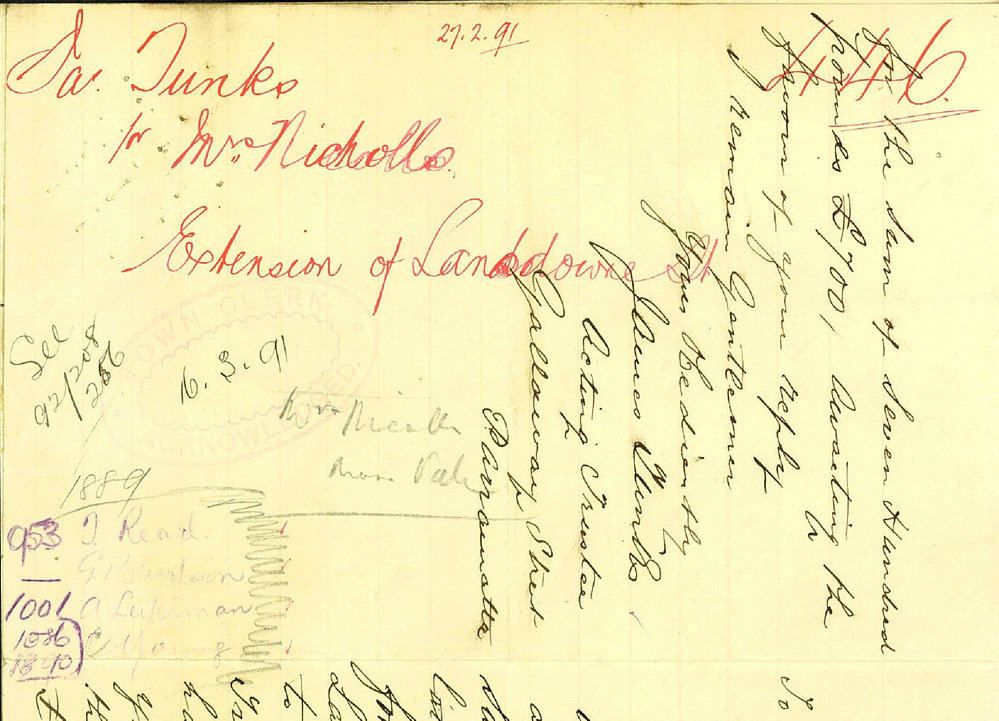 27.2.91
446
Jas. Tunks
for Mrs Nicholls.
Extension of Lansdowne St
TOWN CLERK
ACKNOWLEDGED.
See
92/208
256
16.3.91
Mrs
1889
953 J Read.
— G Robertson
1001 A
1086 C Young
1890
for the sum of Seven Hundred
pounds £700, Awaiting the
favour of your reply
I remain Gentlemen
Yours Obediently
James Tunks
Acting Trustee
Gallaway Street
Parramatta